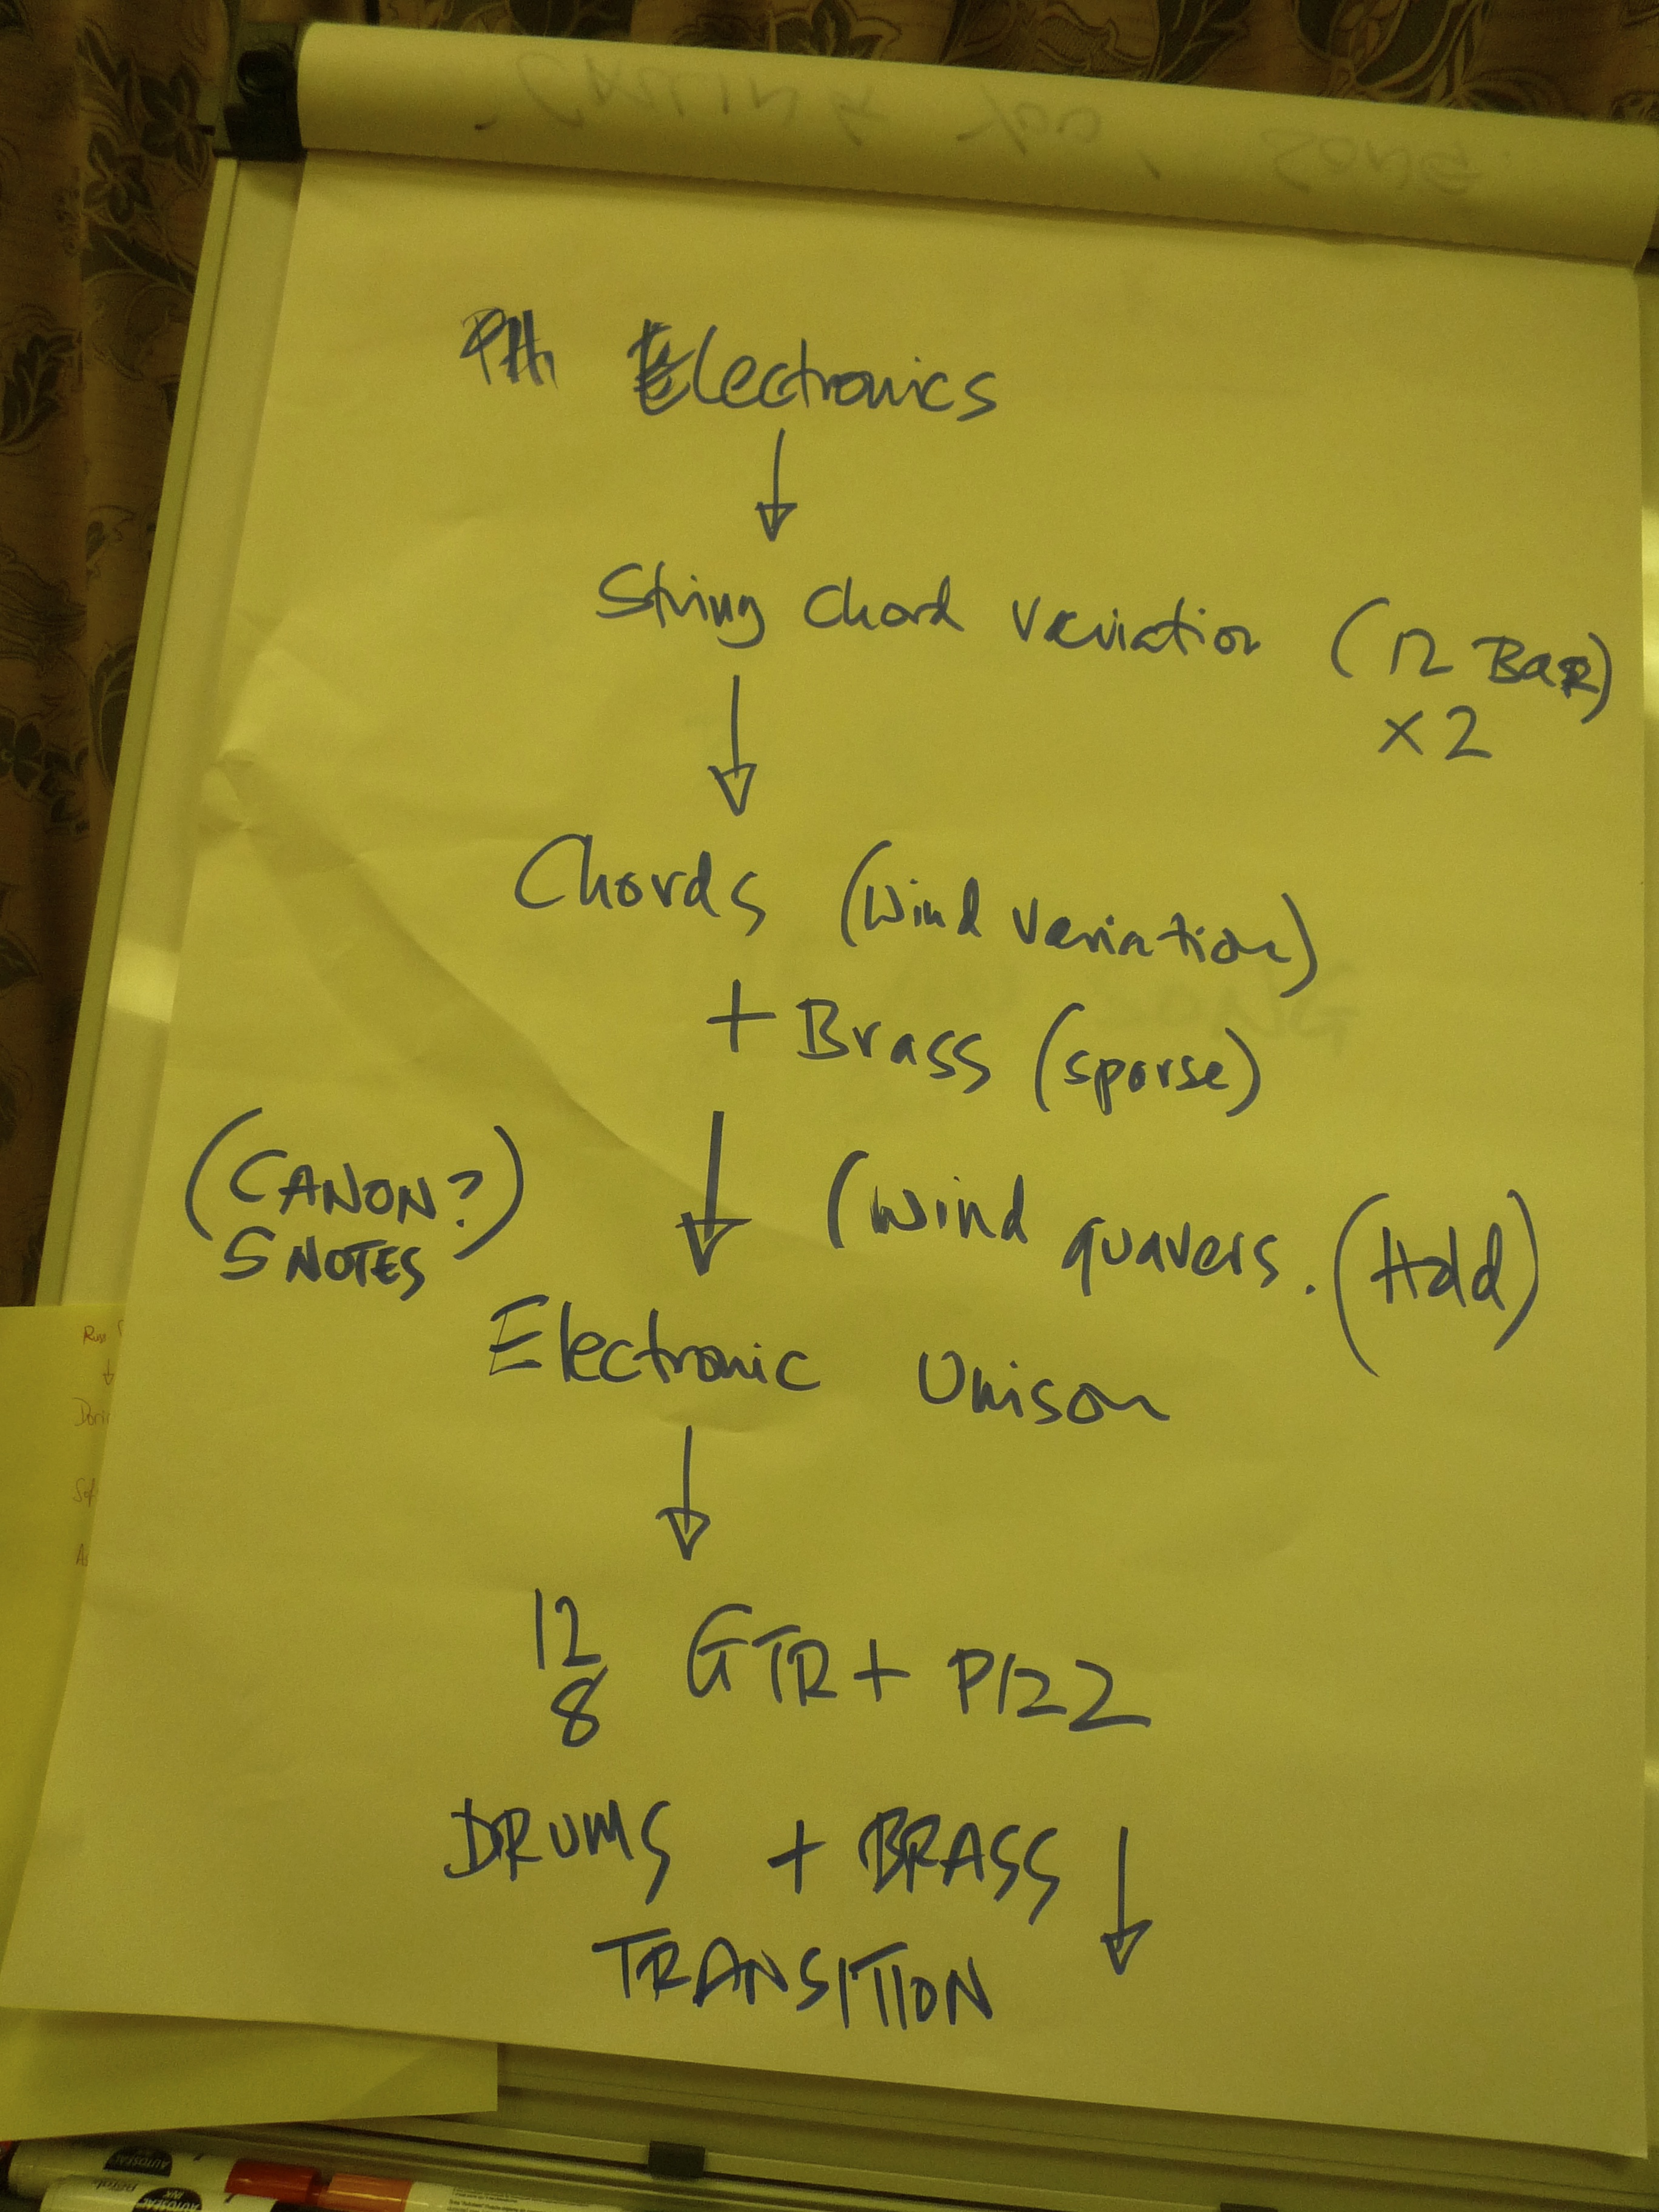 Electronics
↓
String Chord Variation (12 BAR)
x2
↓
Chords (Wind Variation)
+ Brass (sparse)
↓
(CANON?)
5 NOTES
(Wind quavers. (Hold)
Electronic Unison
↓
12
8
GTR + PIZZ
DRUMS + BRASS ↓
TRANSITION